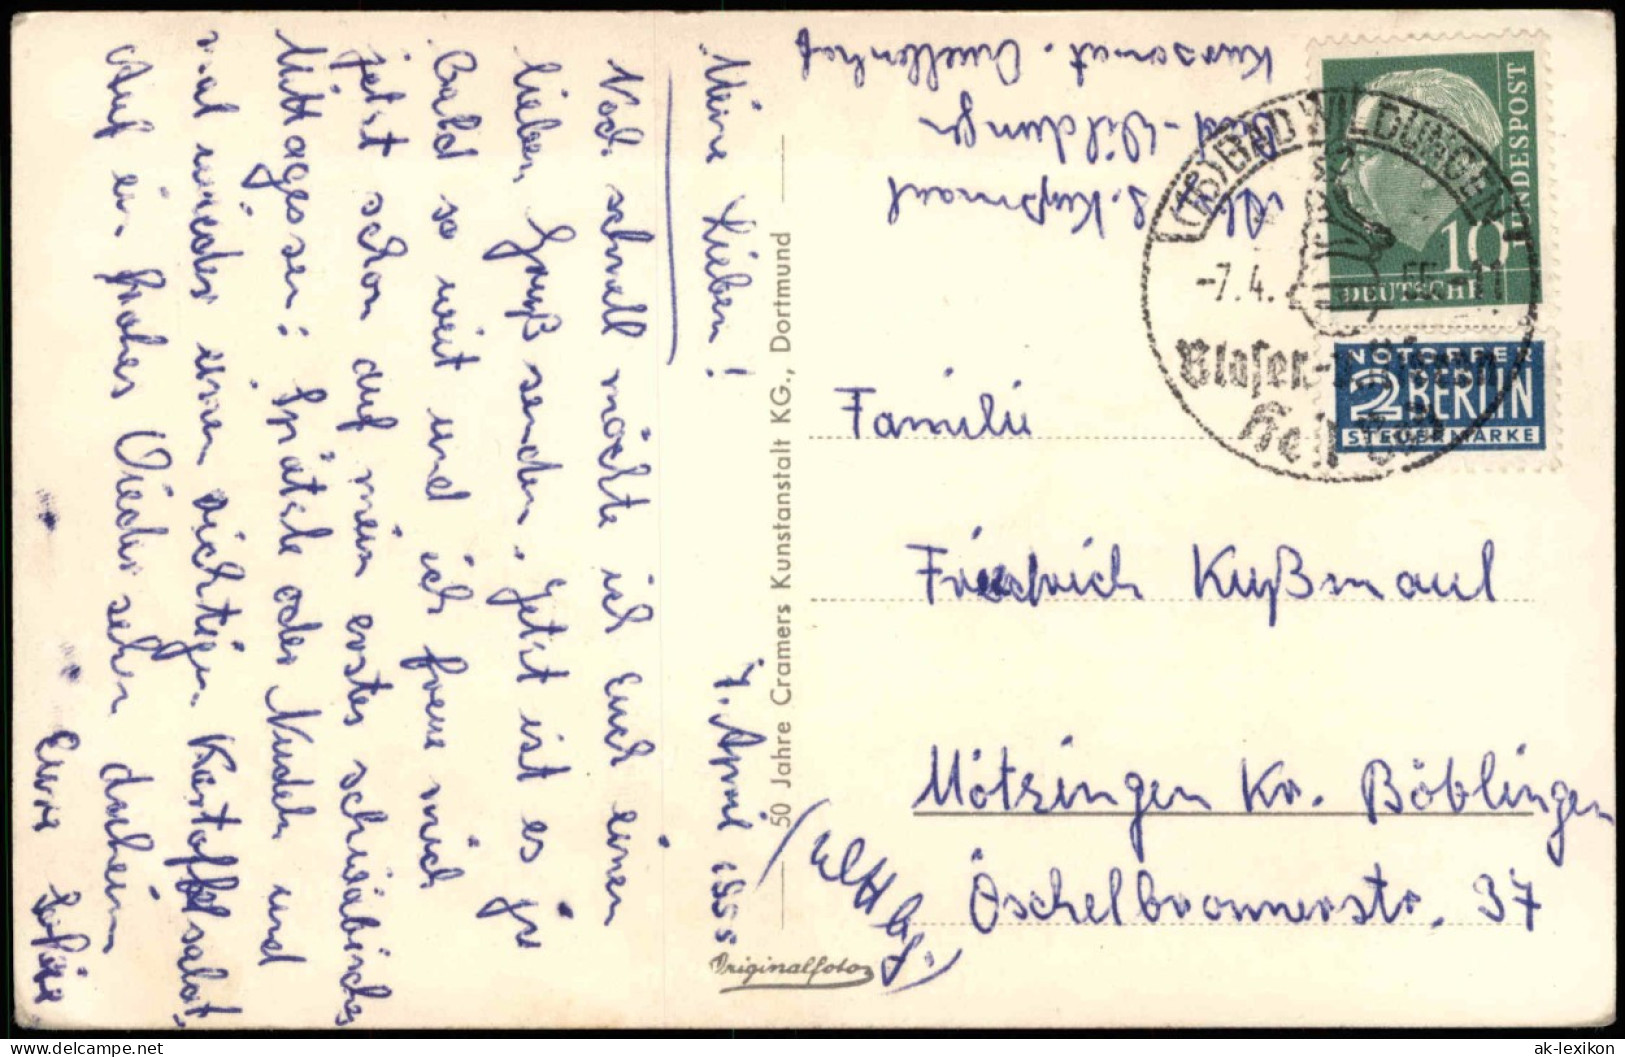 Meine Lieben!
7. April 1955
Noch schnell möchte ich Euch einen
lieben Gruß senden. Jetzt ist es ja
Bald so weit und ich freue mich
jetzt schon auf mein erstes schwäbisches
Mittagessen: Spätzle oder Nudeln und
mal wieder einen richtigen Kartoffelsalat.
Auf ein frohes Wiedersehen daheim
Eure Sofie
Abs. S. Kußmaul
Bad-Wildungen
Kursanat. Quellenhof
50 Jahre Cramers Kunstanstalt KG., Dortmund
Originalfoto
(16) BAD WILDUNGEN
-7.4.55.-11
Blasen-
Heilbad
BUNDESPOST
10
DEUTSCHE
NOTOPFER
2 BERLIN
STEUERMARKE
Familie
Friedrich Kußmaul
Mötzingen Kr. Böblingen
Öschelbronnerstr. 37
(Wttbg.)
ak-lexikon
delcampe.net